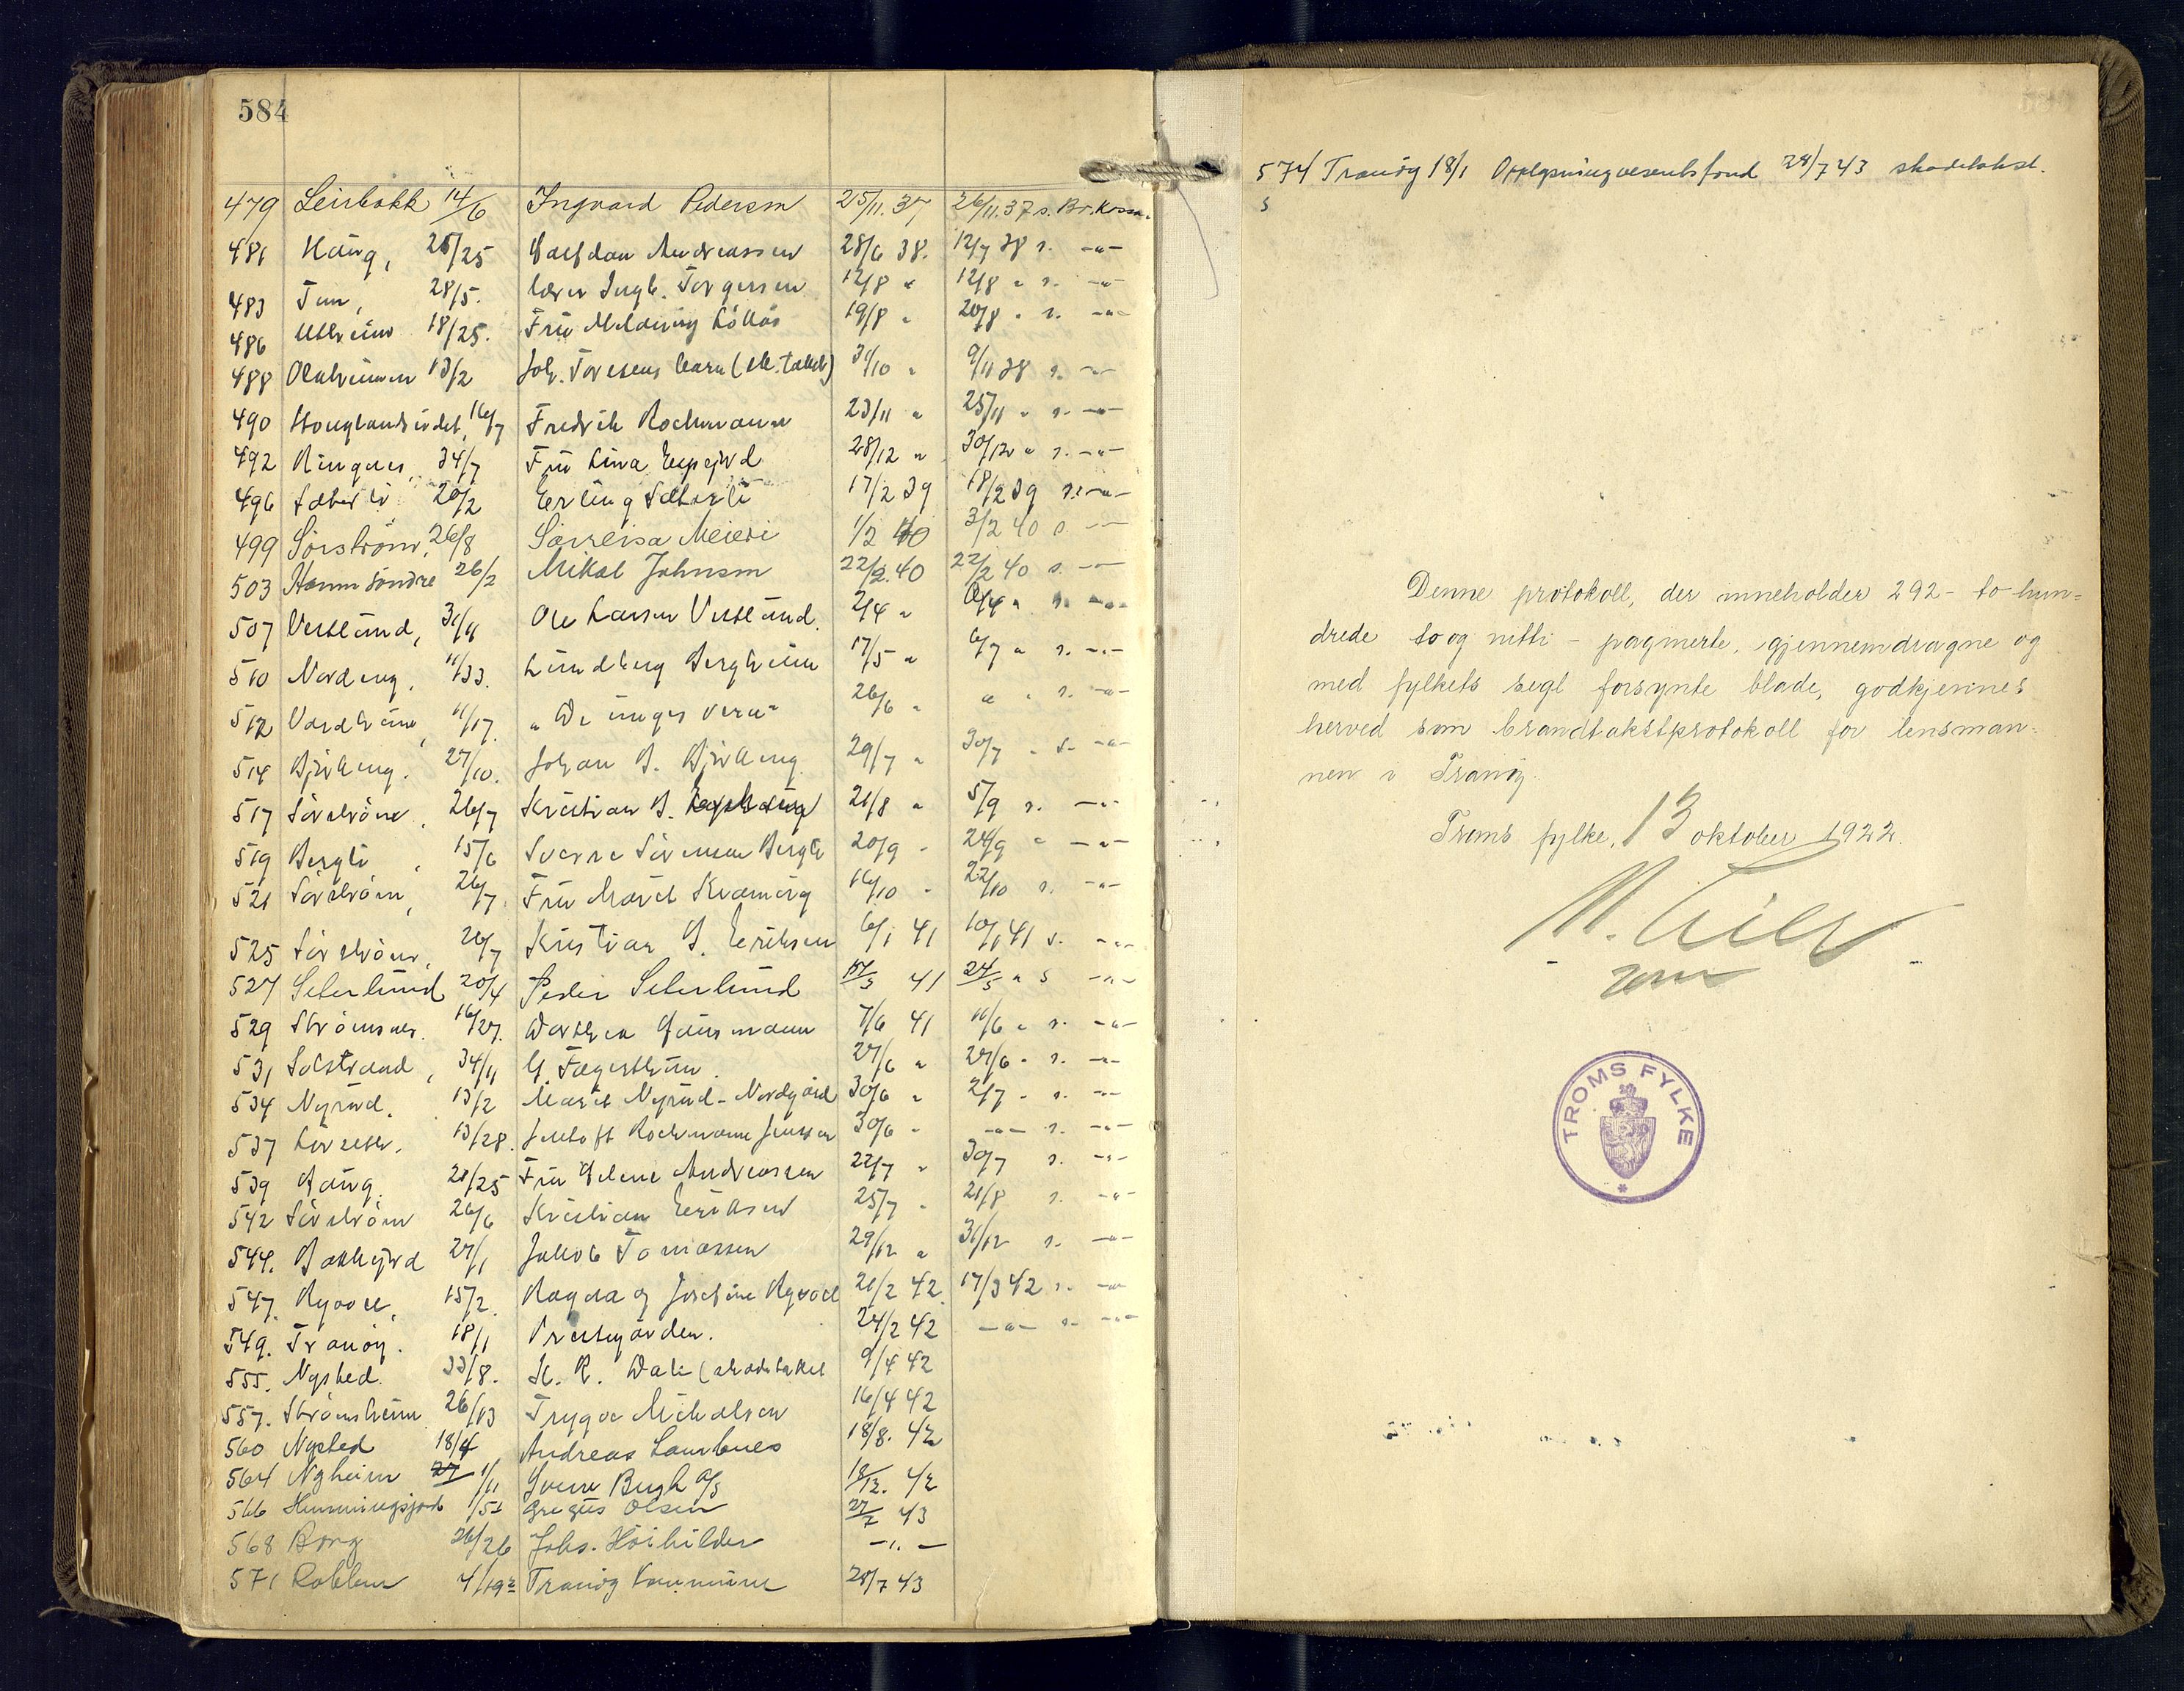 584
479 Leirbakk 14/6 Ingvard Pedersen 25/11.37 26/11.37 s. Br.kassa.
481 Haug, 25/25 Halfdan Andreassen 28/6 38. 12/7 38 s. -"-
483 Tun, 28/5. Lærer Ingb. Torgersen 12/8 " 12/8 " s. -"-
486 Utheim 18/25. Fru Løkås 19/8 " 20/8 " s. -"-
488 13/2 Joh. Toresens 31/10 " 9/11 38 s. -"-
490 16/7 Fredrik Rochmann 23/11 " 25/11 " s. -"-
492 Ringnes, 34/7 Fru Lina 28/12 " 30/12 " s. -"-
496 Sæterli 20/2 Erling Sæterli 17/2 39 18/2 39 s. -"-
499 Sörström, 26/8 Sörreisa Meieri 1/2 40 3/2 40 s. -"-
503 Hamn söndre 26/2 Mikal Johnsen 22/2.40 22/2 40 s. -"-
507 Vestlund, 31/4 Ole Larsen Vestlund. 2/4 " s. -"-
510 Nordeng, 11/33. Lindberg Bergheim 17/5 " 6/7 " s. -"-
512 11/17. "De unges vern" 26/6 " " " s. -"-
514 Björkeng. 27/10. Johan B. Björkeng 29/7 " 30/7 " s. -"-
517 Sörström, 26/7 Kristian J. 21/8 " 5/9 s. -"-
519 Bergli, 15/6 Sverre Sörensen Bergli 20/9 " 24/9 " -"-
521 Sörström, 26/7 Fru Marit Kramvig 16/10 " 22/10 s. -"-
525 Sörström, 26/7 Kristian J. Eriksen 6/1 41 10/1 41 s. -"-
527 Seterlund 20/4 Peder Seterlund 17/5 41 24/5 " s -"-
529 Strömsnes. 16/27. Dorthea Hansmann 7/6 41 11/6 " s. -"-
531 Solstrand, 34/11 G. Fagertheim. 27/6 " 27/6 " s. -"-
534 Nyrud. 13/2 Marit Nyrud-Nordgård 30/6 " 2/7 " s. -"-
537 13/28. Rochmann Jenssen 30/6 " -"- s. -"-
539 Haug. 21/25 Fru Helene Andreassen 22/7 " 30/7 s. -"-
542 Sörström 26/6 Kristian Eriksen 25/7 " 21/8 s. -"-
544. Bakkejord 27/1 Jakob Tomassen 29/12 " 31/12 s. -"-
547. 15/2. Ragna og Josefine 21/2 42 17/3 42 s. -"-
549. Tranöy. 18/1 Prestegården. 24/2 42 -"- s. -"-
555. Nysted. 33/8. K. R. Dale (skadetakst 9/4 42
557. Strömsheim 26/13 Trygve Mikalsen 16/4 42
560 Nysted 18/4 Andreas Lauknes 18/8. 42
564 Nyheim 1/11 Sverre Bergh A/S 18/12. 42
566 Hemmingsjord 1/51 Gregus Olsen 27/7 43
568 Borg 26/26 Johs. Höihilder -"-
571 4/19 Tranöy kommune 28/7 43
574 Tranöy 18/1 Opplysningsvesenets fond 28/7 43 skadetakst.
Denne protokoll, der inneholder 292 - to hun=
drede to og nitti - paginerte, gjennemdragne og
med fylkets segl forsynte blade, godkjennes
herved som brandtakstprotokoll for lensman=
nen i Tranöy.
Troms fylke, 13 oktober 1922.
TROMS FYLKE